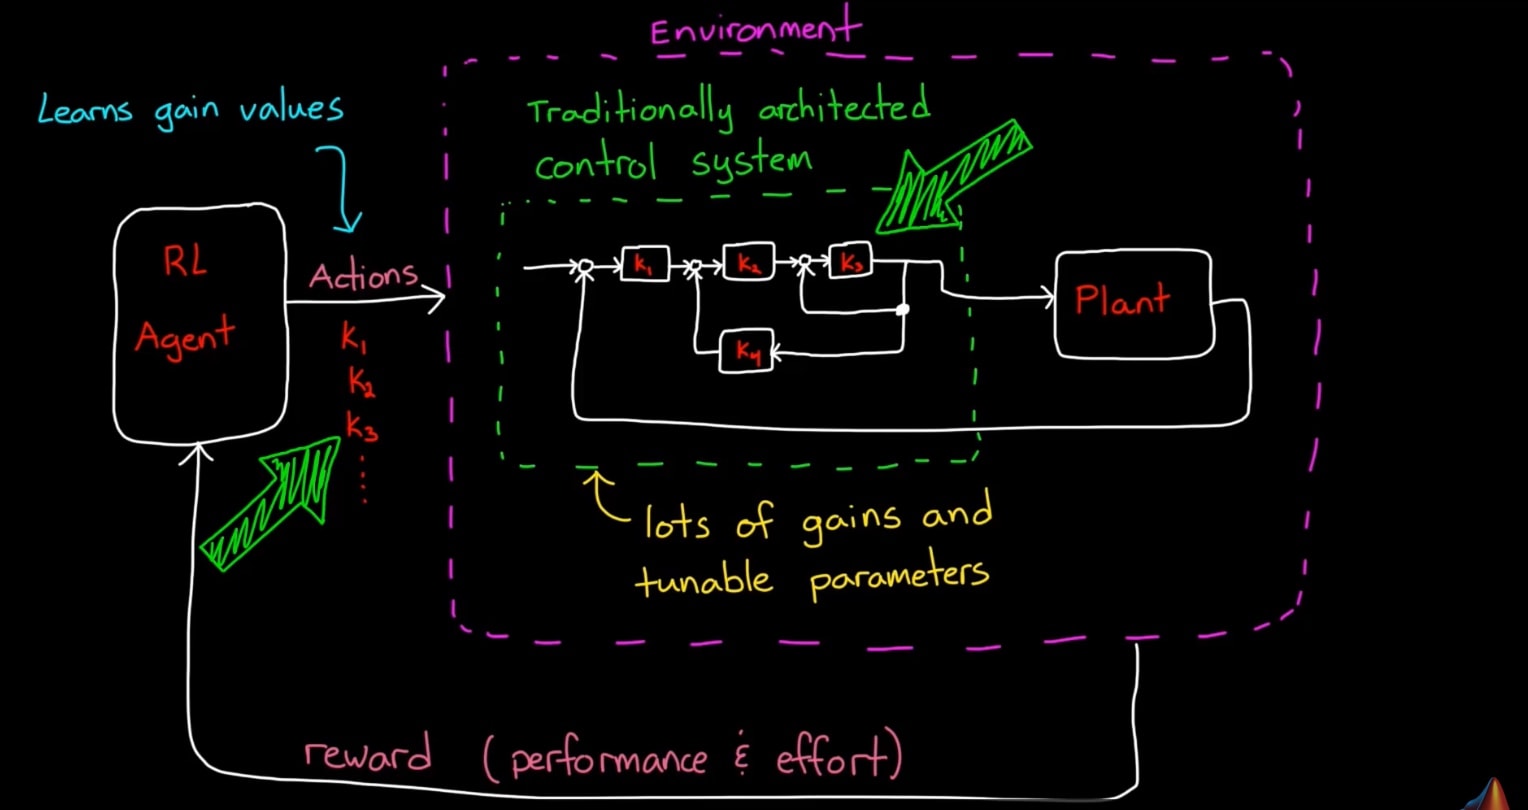 Environment
Learns gain values
Traditionally architected
control system
RL
Agent
Actions
K1
K2
K3
K1
K2
K3
K4
Plant
lots of gains and
tunable parameters
reward (performance & effort)